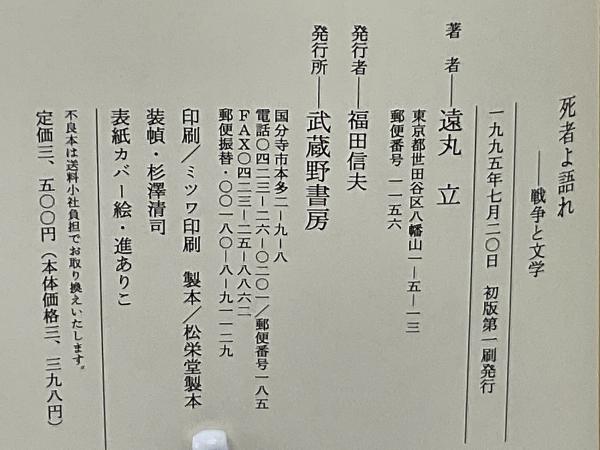 死者よ語れ
――戦争と文学
一九九五年七月二〇日　初版第一刷発行
著　者――遠丸　立
東京都世田谷区八幡山一―五―一三
郵便番号　一五六
発行者――福田信夫
発行所――武蔵野書房
国分寺市本多二―九―八
電話〇四二三―二六―〇二〇一／郵便番号一八五
ＦＡＸ〇四二三―二五―八八六二
郵便振替・〇〇一八〇―八―九一一二九
印刷／ミツワ印刷　製本／松栄堂製本
装幀・杉澤清司
表紙カバー絵・進ありこ
不良本は送料小社負担でお取り換えいたします。
定価三、五〇〇円（本体価格三、三九八円）